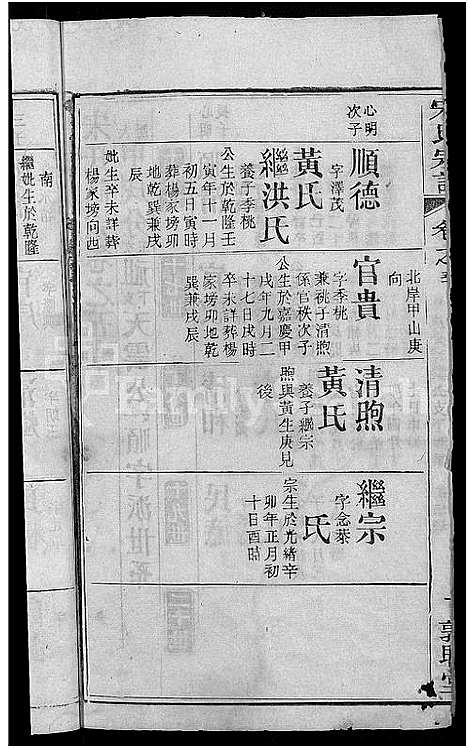 心明
次子
順德
字澤茂
黃氏
繼洪氏
養子季桃
公生於乾隆壬
寅年十一月
初五日寅時
葬楊家塝卯
地乾巽兼戌
辰
妣生卒未詳葬
楊家塝向西
北岸甲山庚
向
官貴
字季桃
兼祧子清煦
係官秩次子
公生於嘉慶甲
戌年九月二
十七日戌時
卒未詳葬楊
家塝卯地乾
巽兼戌辰
清煦
黃氏
養子繼宗
煦與黃生庚兄
後
繼宗
字念萊
氏
宗生於光緒辛
卯年正月初
十日酉時
南
繼妣生於乾隆